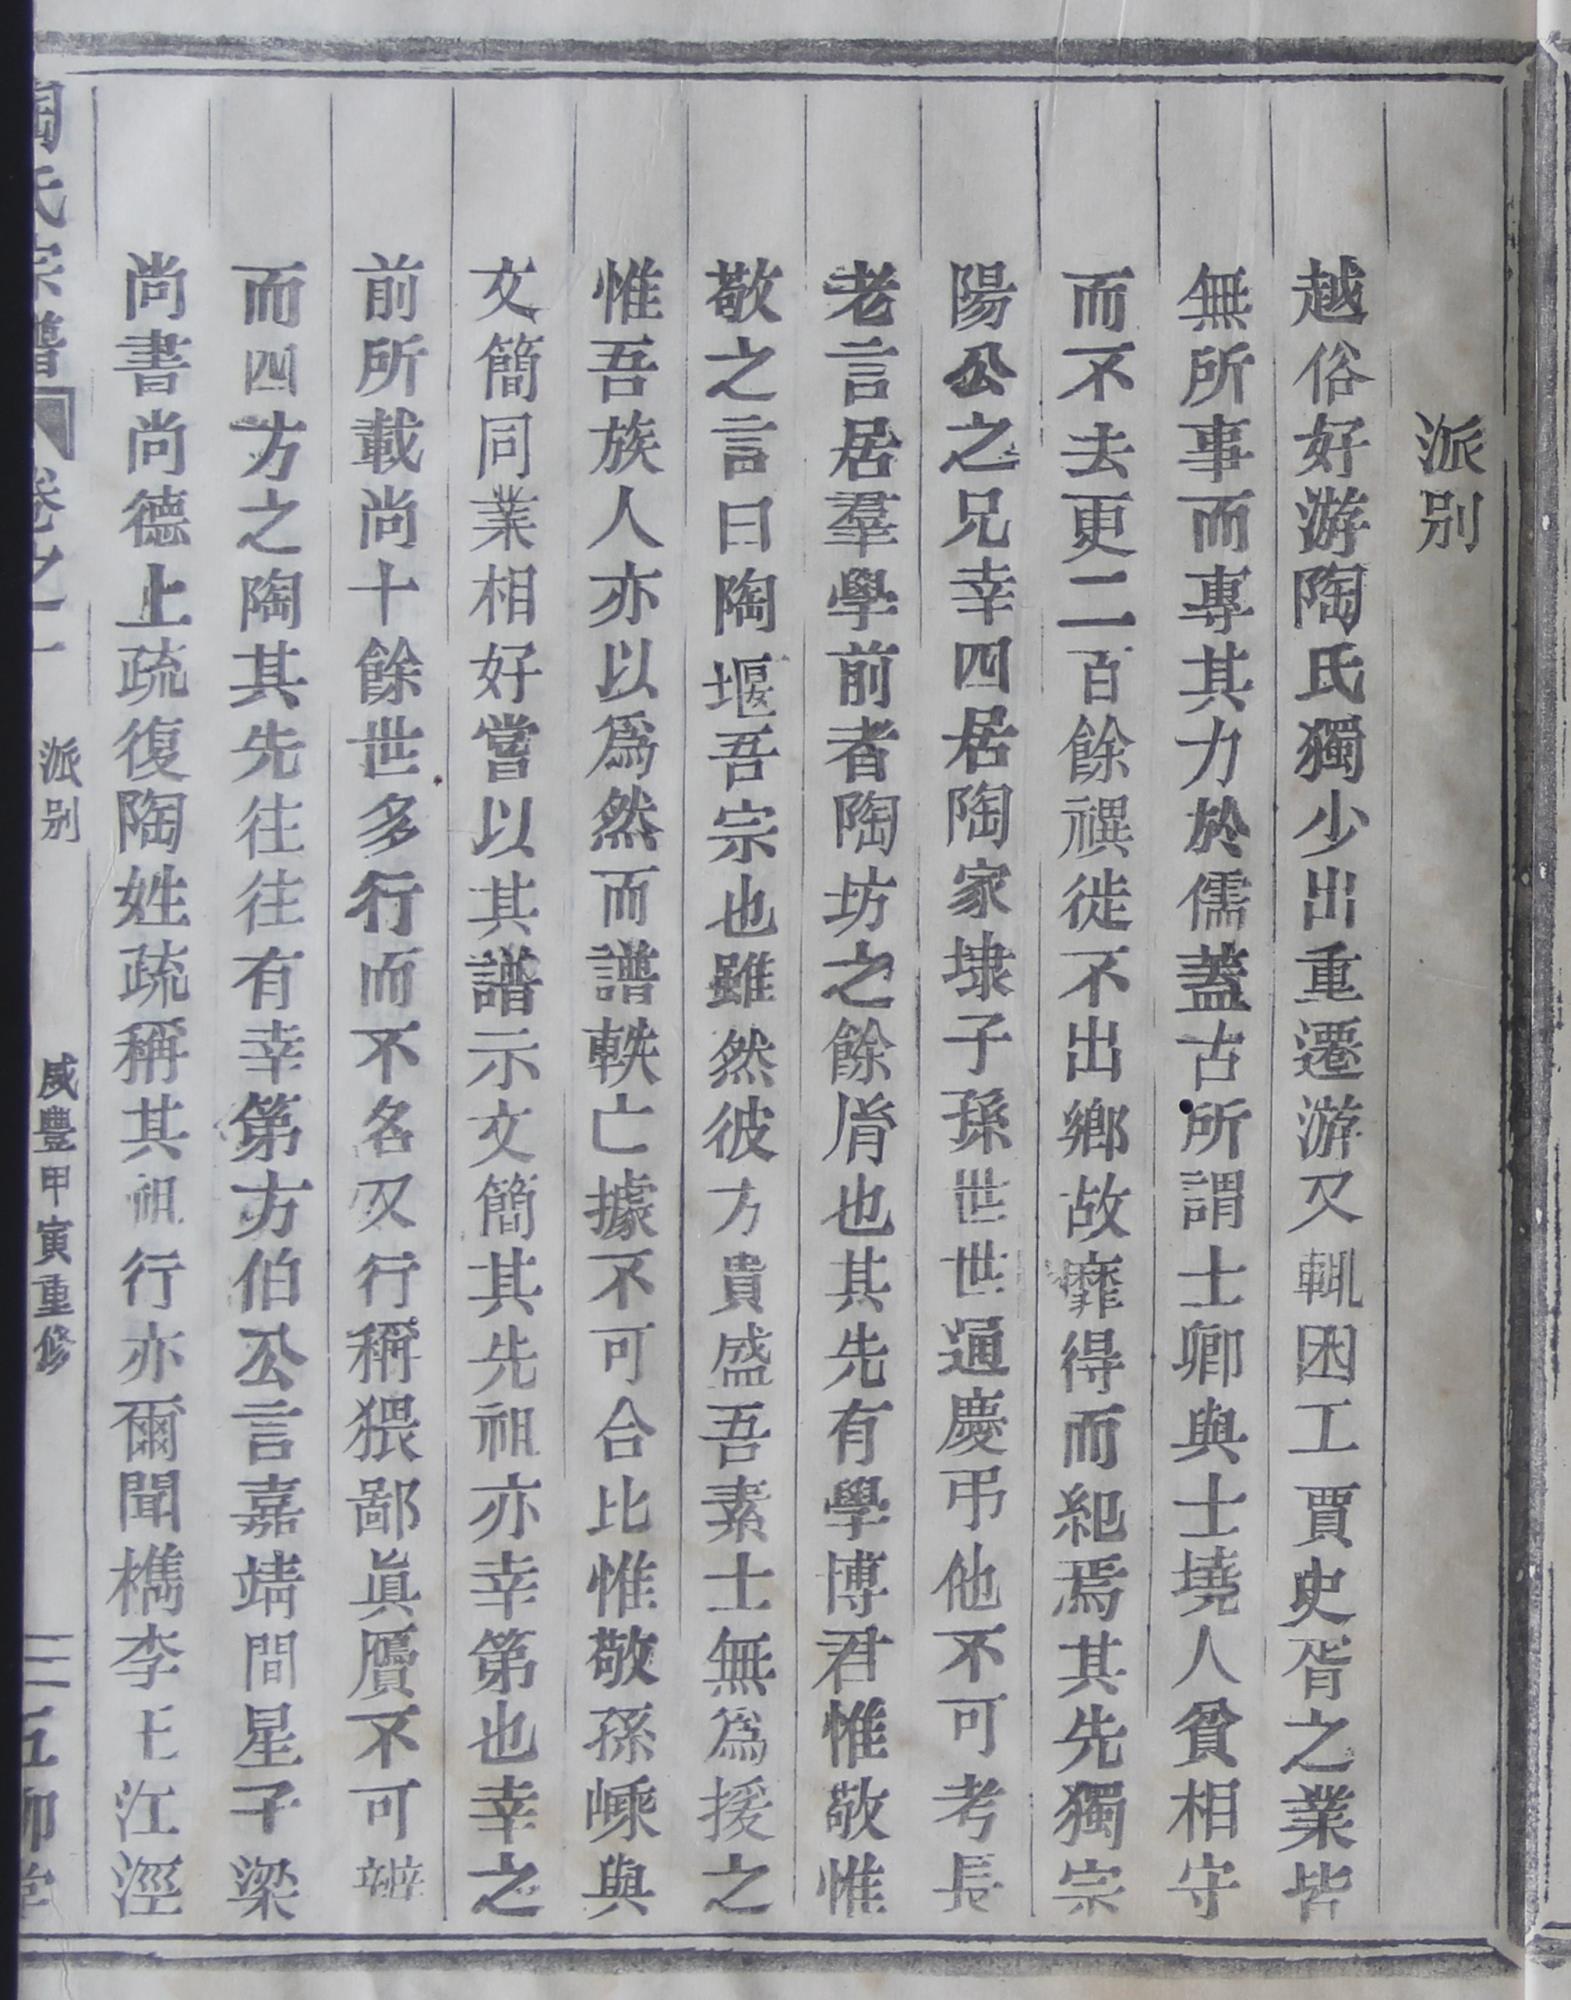 派别
越俗好游陶氏獨少出重遷游又輒困工賈史胥之業皆
無所事而專其力於儒蓋古所謂士卿與士墝人貧相守
而不去更二百餘禩徙不出鄉故靡得而紀焉其先獨宗
陽公之兄幸四居陶家埭子孫世世通慶弔他不可考長
老言居羣學前者陶坊之餘㡯也其先有學博君惟敬惟
敬之言曰陶堰吾宗也雖然彼方貴盛吾素士無爲援之
惟吾族人亦以爲然而譜軼亡據不可合比惟敬孫嵊與
文簡同業相好嘗以其譜示文簡其先祖亦幸第也幸之
前所載尚十餘世多行而不名又行稱猥鄙眞贋不可辨
而四方之陶其先往往有幸第方伯公言嘉靖間星子梁
尚書尚德上疏復陶姓疏稱其祖行亦爾聞檇李王江涇
陶氏宗譜
卷之一
派别
咸豐甲寅重修
三
五柳堂